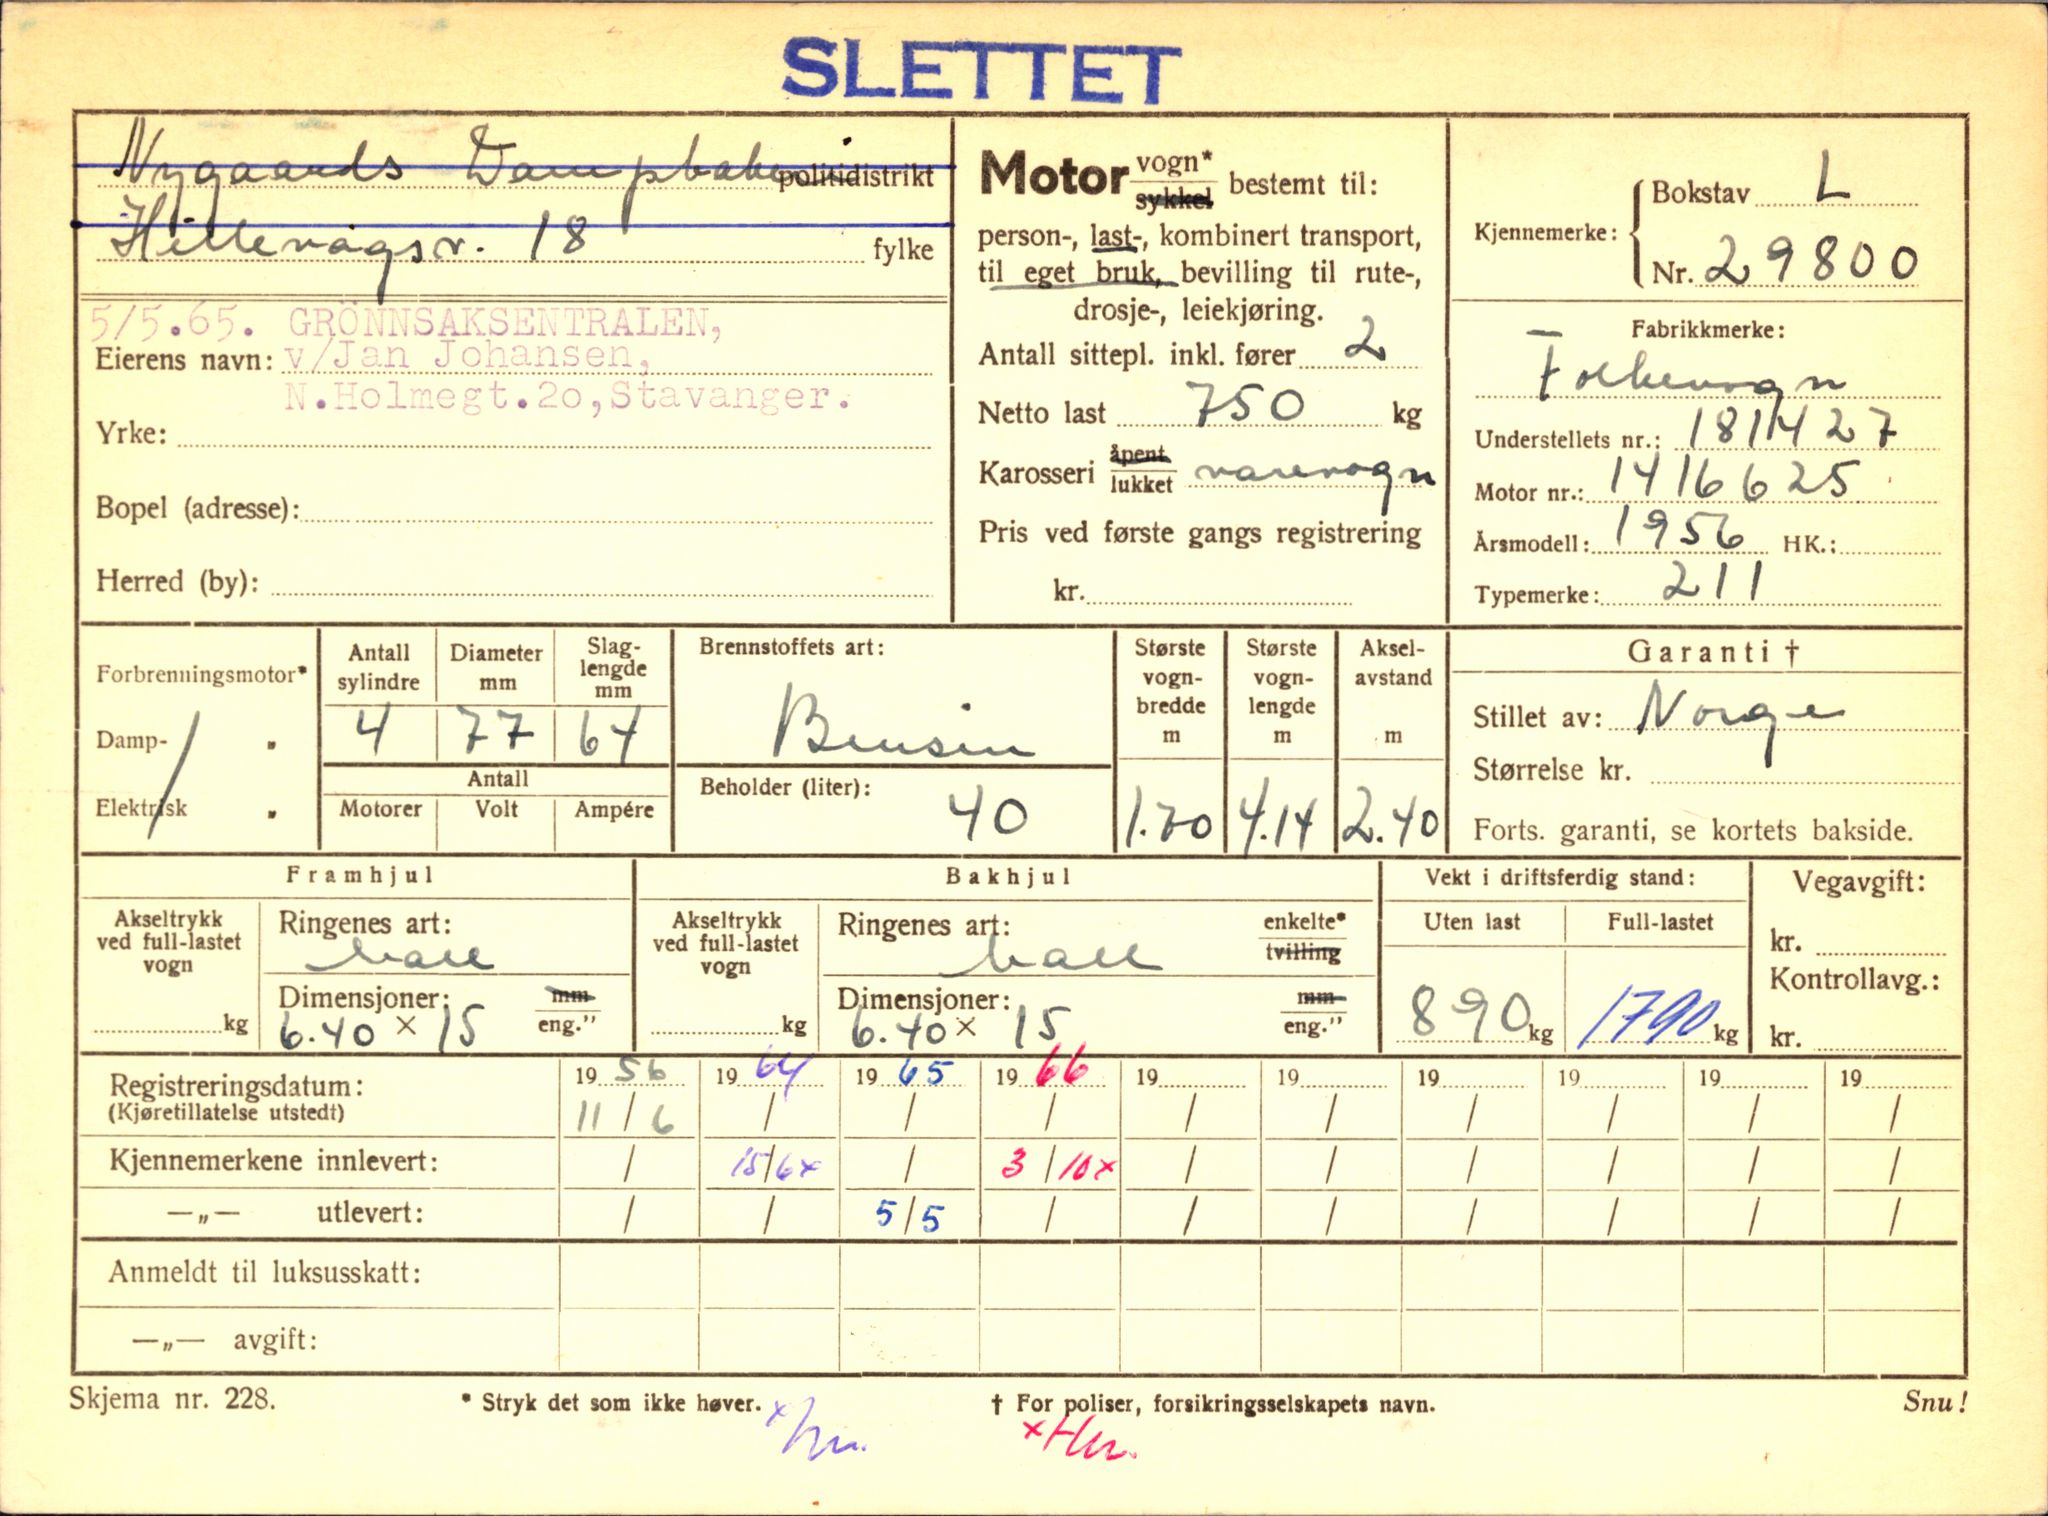 SLETTET
Nygaards Dampbakeri politidistrikt
Hillevågsv. 18 fylke
5/5.65. GRÖNNSAKSENTRALEN,
Eierens navn: v/Jan Johansen,
N.Holmegt.20, Stavanger.
Yrke:
Bopel (adresse):
Herred (by):
Motor vogn* / sykkel bestemt til:
person-, last-, kombinert transport,
til eget bruk, bevilling til rute-,
drosje-, leiekjøring.
Antall sittepl. inkl. fører 2
Netto last 750 kg
Karosseri åpent / lukket varevogn
Pris ved første gangs registrering
kr.
Kjennemerke: Bokstav L
Nr. 29800
Fabrikkmerke:
Folkevogn
Understellets nr.: 181427
Motor nr.: 1416625
Årsmodell: 1956 HK.:
Typemerke: 211
Forbrenningsmotor*
Damp- "
Elektrisk "
Antall sylindre Diameter mm Slag-lengde mm
4 77 64
Antall
Motorer Volt Ampére
Brennstoffets art:
Bensin
Beholder (liter): 40
Største vogn-bredde m 1.70
Største vogn-lengde m 4.14
Aksel-avstand m 2.40
Garanti †
Stillet av: Norge
Størrelse kr.
Forts. garanti, se kortets bakside.
Framhjul
Akseltrykk ved full-lastet vogn
kg
Ringenes art:
Dimensjoner: mm
6.40 × 15 eng."
Bakhjul
Akseltrykk ved full-lastet vogn
kg
Ringenes art: enkelte* / tvilling
Dimensjoner: mm
6.40 × 15 eng."
Vekt i driftsferdig stand:
Uten last Full-lastet
890 kg 1790 kg
Vegavgift:
kr.
Kontrollavg.:
kr.
Registreringsdatum: 19 56 19 64 19 65 19 66 19 19 19 19 19 19
(Kjøretillatelse utstedt) 11 / 6 / / / / / / / / /
Kjennemerkene innlevert: / 15/6x / 3 / 10x / / / / / /
—„— utlevert: / / 5/5 / / / / / / /
Anmeldt til luksusskatt:
—„— avgift:
Skjema nr. 228. * Stryk det som ikke høver. † For poliser, forsikringsselskapets navn. Snu!